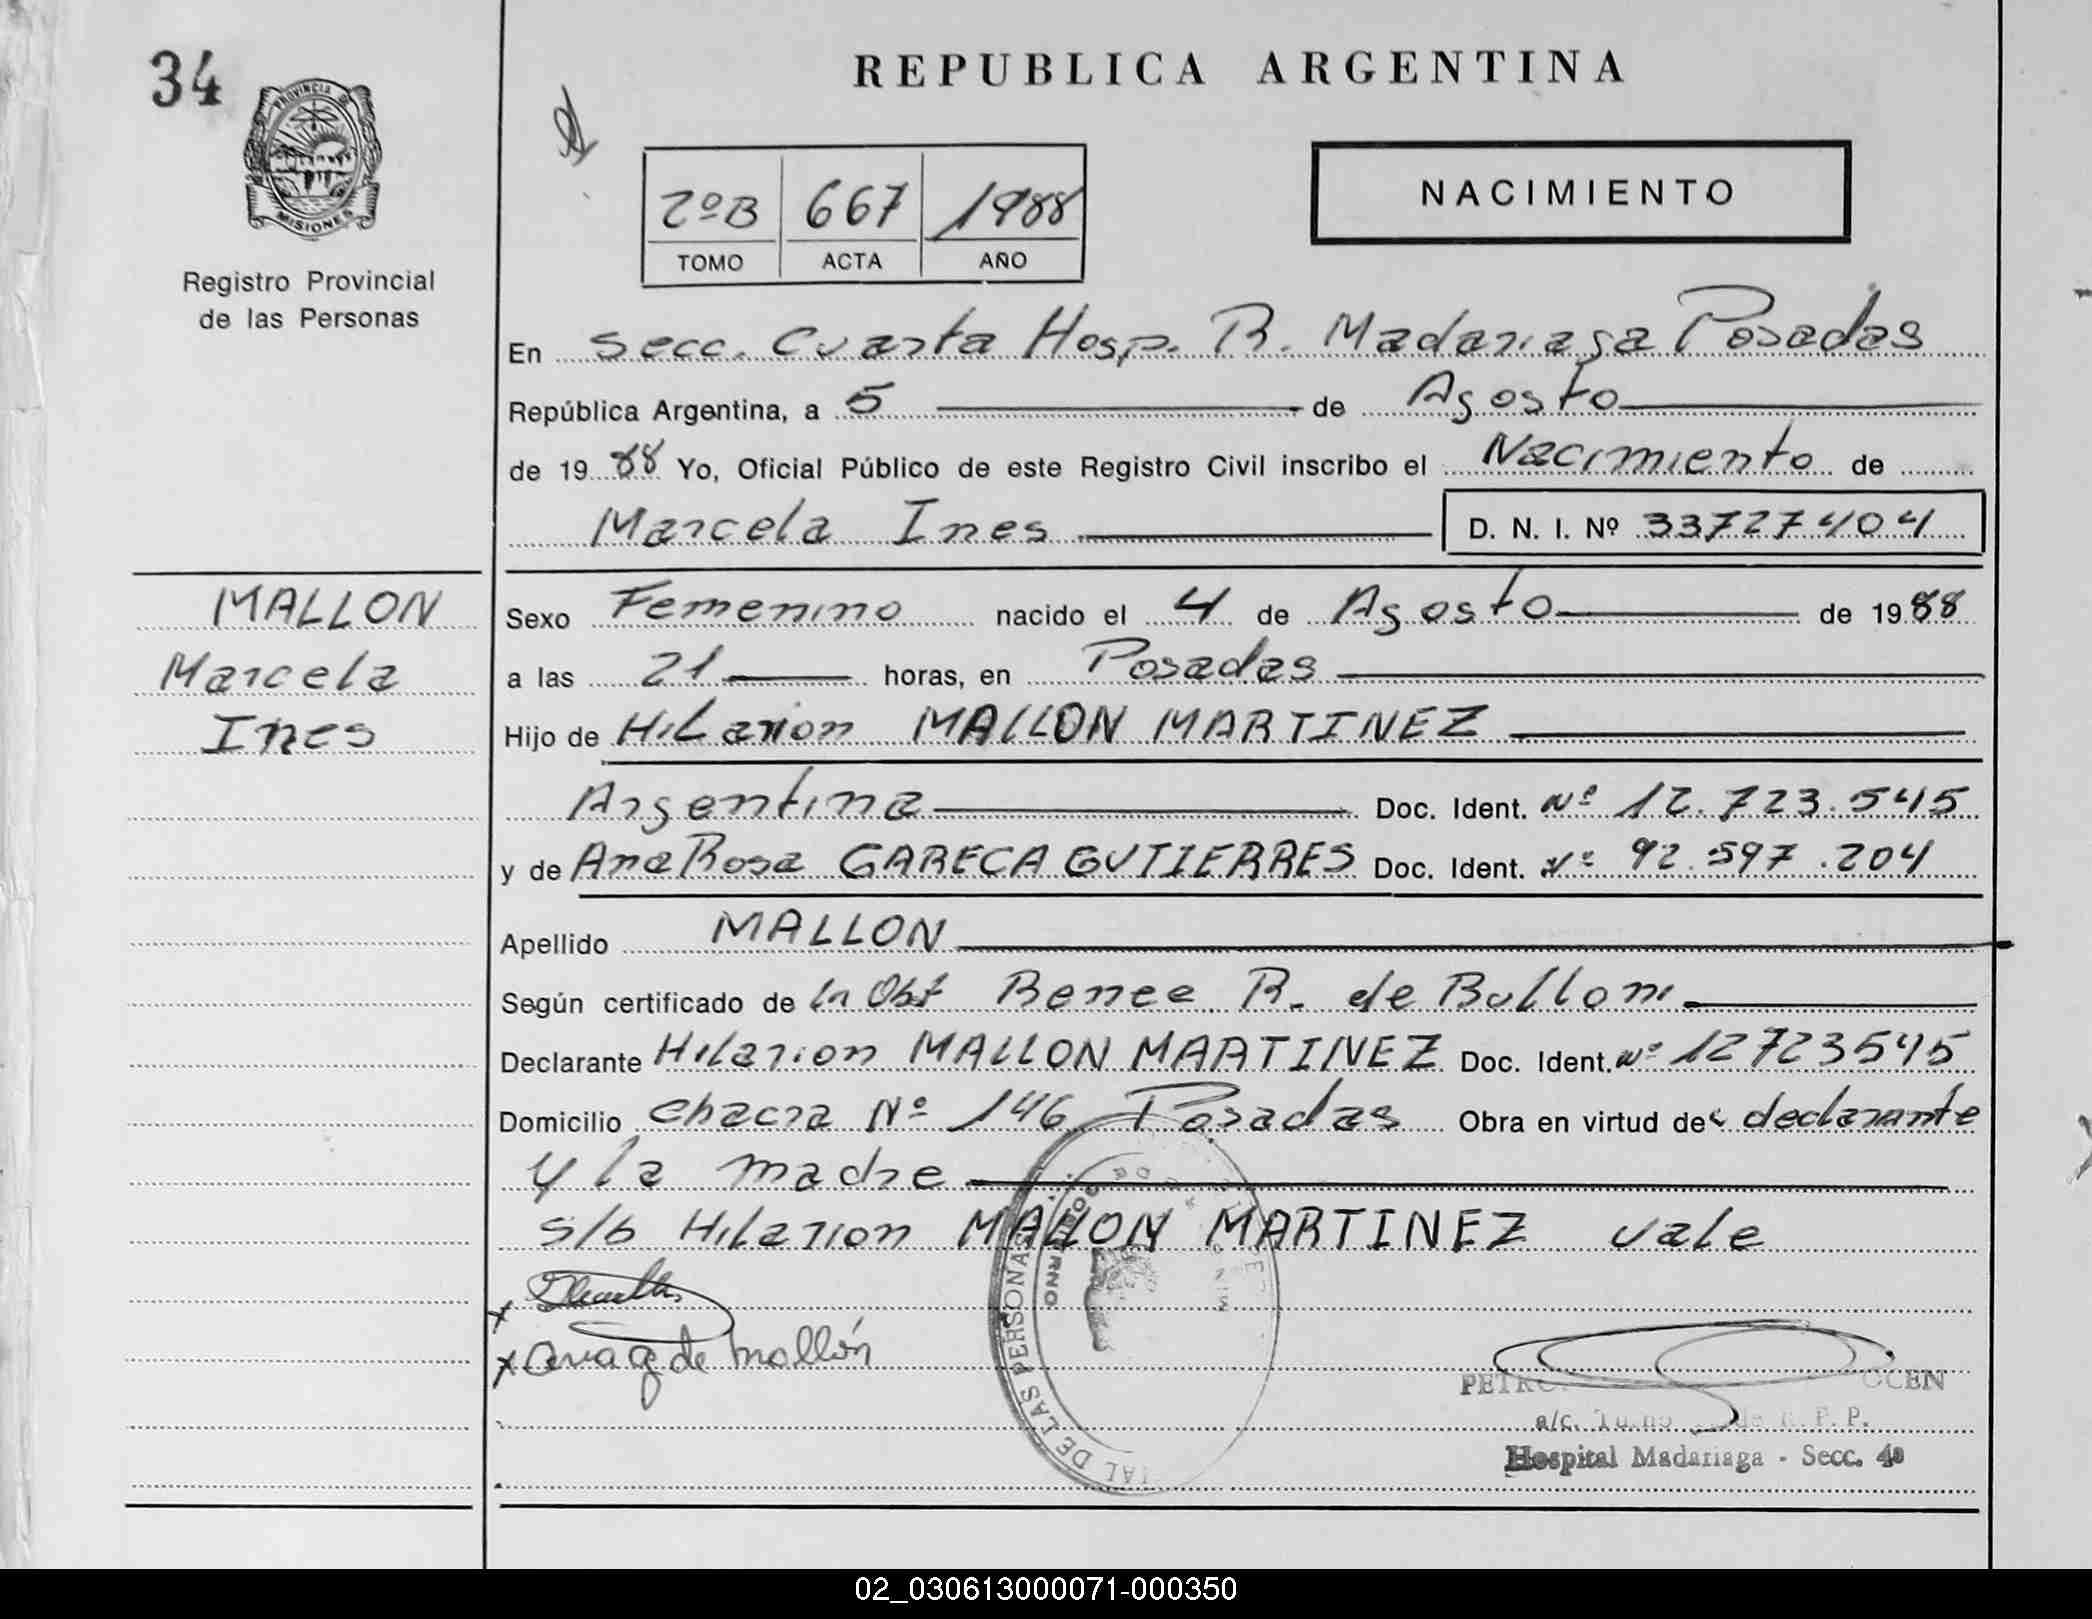 34
REPUBLICA ARGENTINA
PROVINCIA DE
MISIONES
Registro Provincial
de las Personas
2ºB 667 1988
TOMO ACTA AÑO
NACIMIENTO
En Secc. Cuarta Hosp. R. Madariaga Posadas
República Argentina, a 5 de Agosto
de 1988 Yo, Oficial Público de este Registro Civil inscribo el Nacimiento de
Marcela Ines D. N. I. Nº 33727404
MALLON
Marcela
Ines
Sexo Femenino nacido el 4 de Agosto de 1988
a las 21 horas, en Posadas
Hijo de Hilarion MALLON MARTINEZ
Argentina Doc. Ident. Nº 12.723.545
y de Ana Rosa GARECA GUTIERRES Doc. Ident. Nº 92.597.204
Apellido MALLON
Según certificado de la Obst Renee R. de
Declarante Hilarion MALLON MARTINEZ Doc. Ident. Nº 12723545
Domicilio chacra Nº 146 Posadas Obra en virtud de declarante
y la madre
s/b Hilarion MALLON MARTINEZ vale
x
x Ana g de mallón
DE LAS PERSONAS
a/c. P. P.
Hospital Madariaga - Secc. 4a
02_030613000071-000350